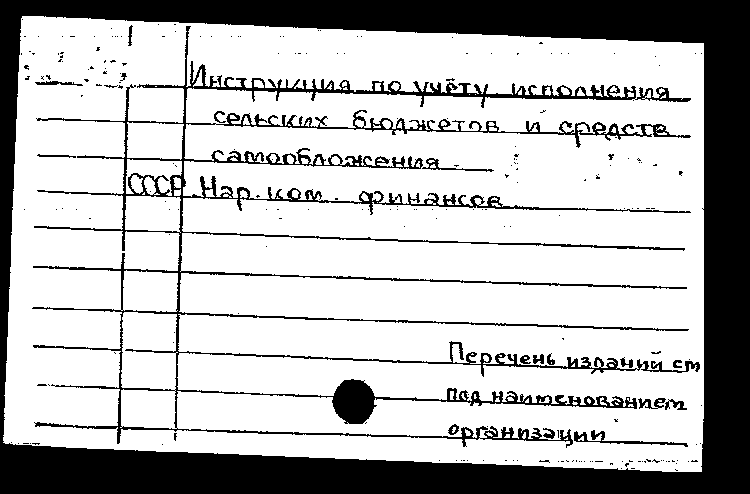 Инструкция по учёту исполнения
сельских бюджетов и средств
самообложения.
СССР. Нар. ком. финансов
Перечень изданий см
под наименованием
организации